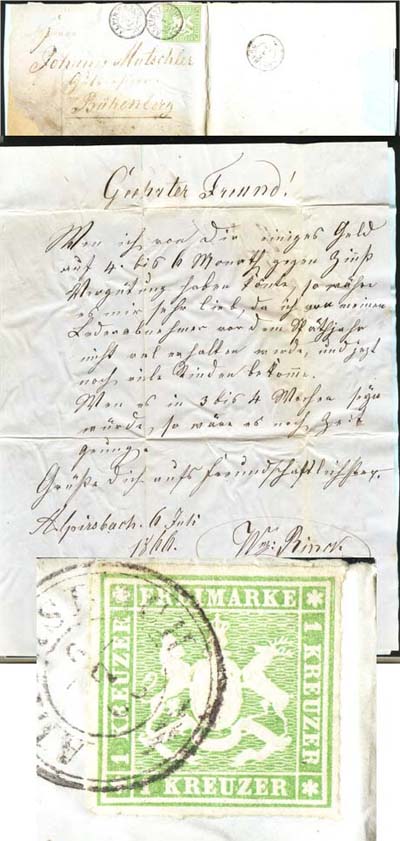 Johannes Mutschler
Böhenberg
Geehrter Freund!
Wen ich von Dir einiges Geld
auf 4 bis 6 Monath gegen Zinß
Vergütung haben könte, so währe
es mir sehr lieb, da ich von meinen
Lederabnehmer vor dem Späthjahr
nicht viel erhalten werde, und jezt
noch viele Rinden bekome.
Wen es in 3 bis 4 Wochen seyn
würde, so wäre es noch Zeit
genug.
Grüße Dich aufs freundschaftlichste
Alpirsbach. 6 Juli
1866.
Rinck
FREIMARKE
1 KREUZER
1 KREUZER
1 KREUZER